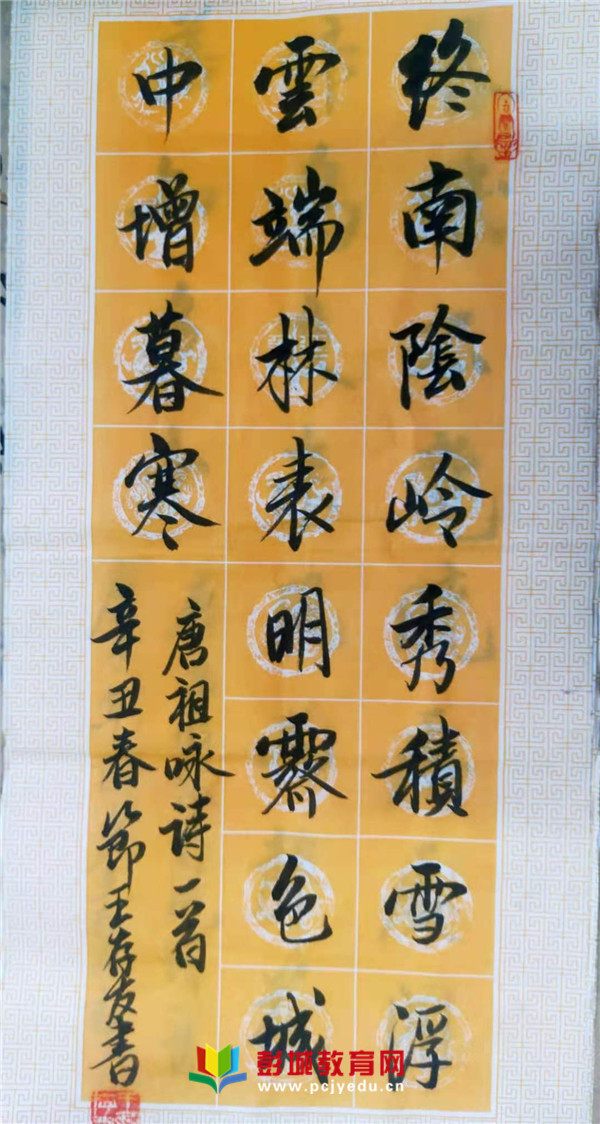 終南陰岭秀積雪浮
雲端林表明霽色城
中增暮寒
唐祖咏詩一首
辛丑春節王存友書
彭城教育网
www.pcjyedu.cn